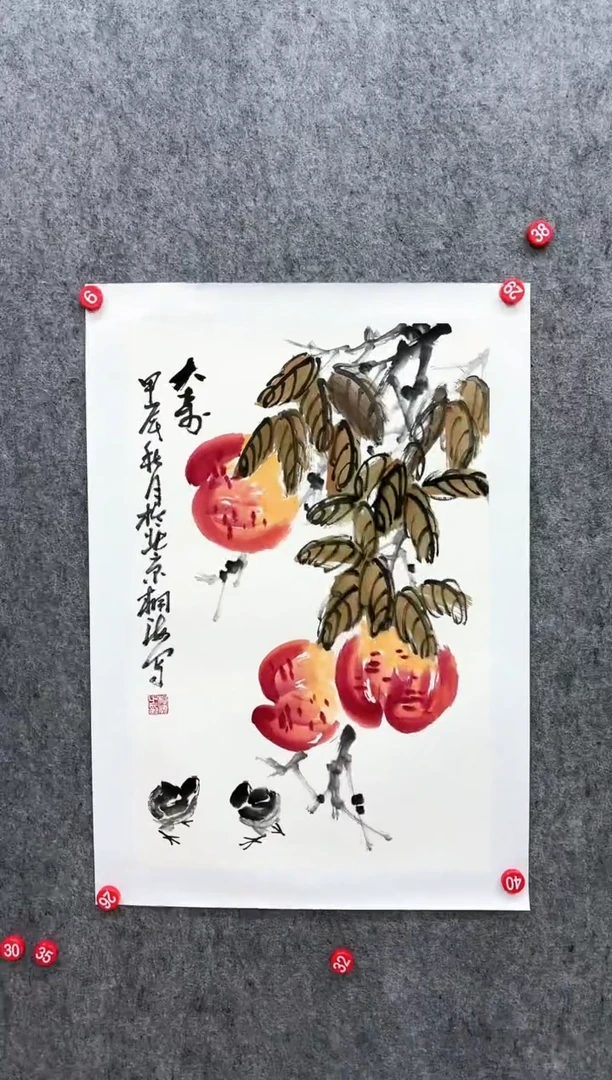 大寿
甲辰秋月於北京桐海写
38
29
9
40
26
30
35
32